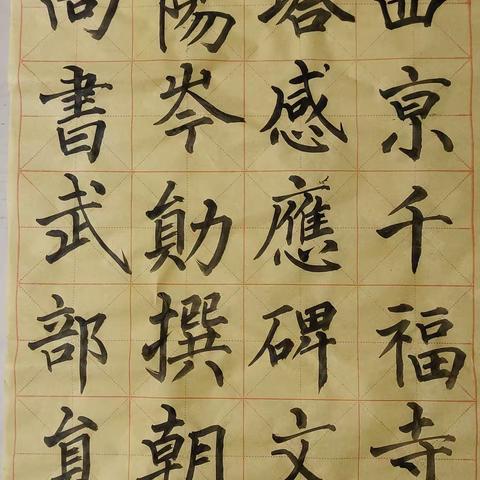 西亰千福寺
塔感應碑文
陽岑勛撰朝
尚書武部員